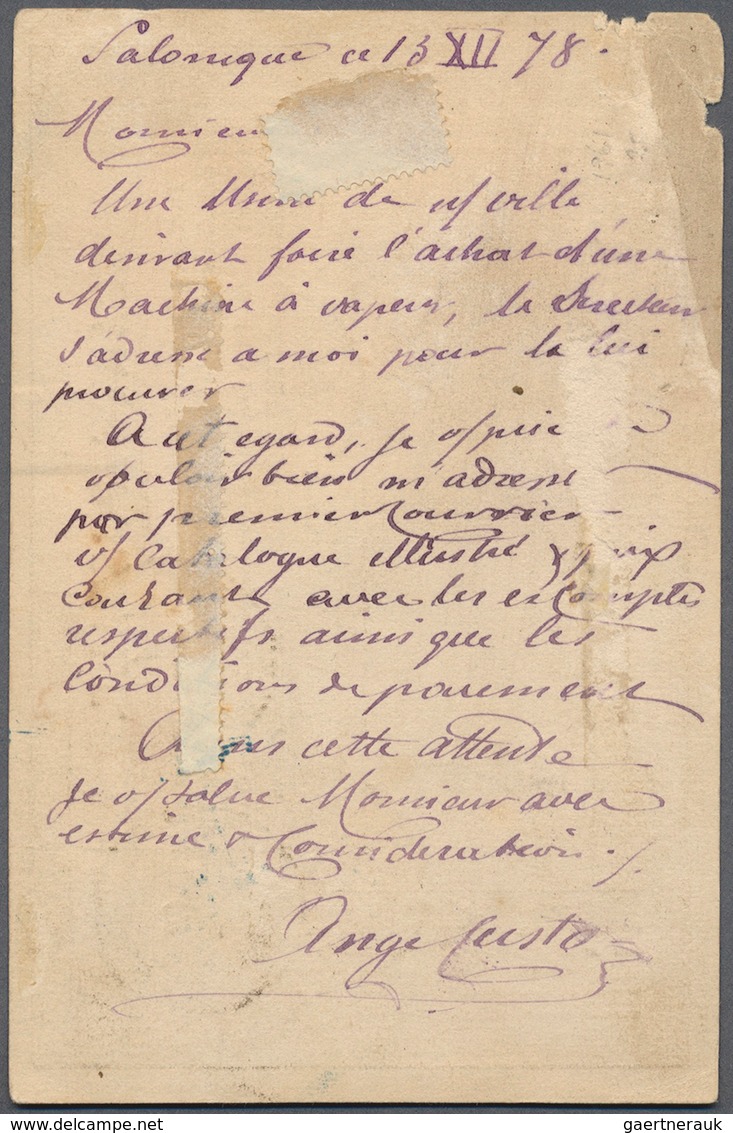 Salonique ce 13 XII 78.
Monsieur
Une Usine de n/ ville
desirant faire l'achat d'une
Machine à vapeur, le Directeur
s'adresse a moi pour la lui
procurer
A cet egard, je v/ prie de
vouloir bien m'adresser
par premier Courrier
v/ Catalogue illustré & prix
Courants avec les escomptes
respectifs ainsi que les
Conditions de paiement
Dans cette attente
je v/ salue Monsieur avec
estime & Consideration ./.
Ange Custo
gaertnerauk